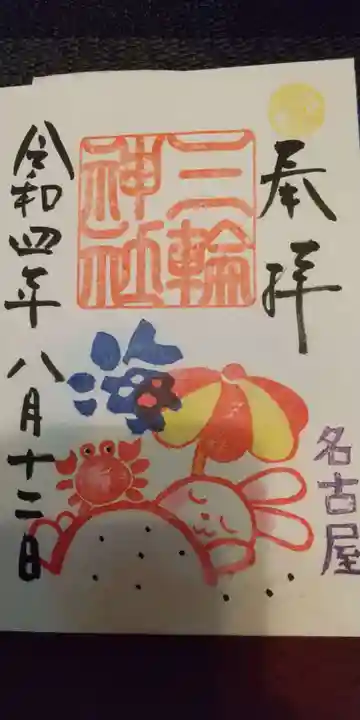 奉拝
三輪
神社
海
名古屋
令和四年八月十二日